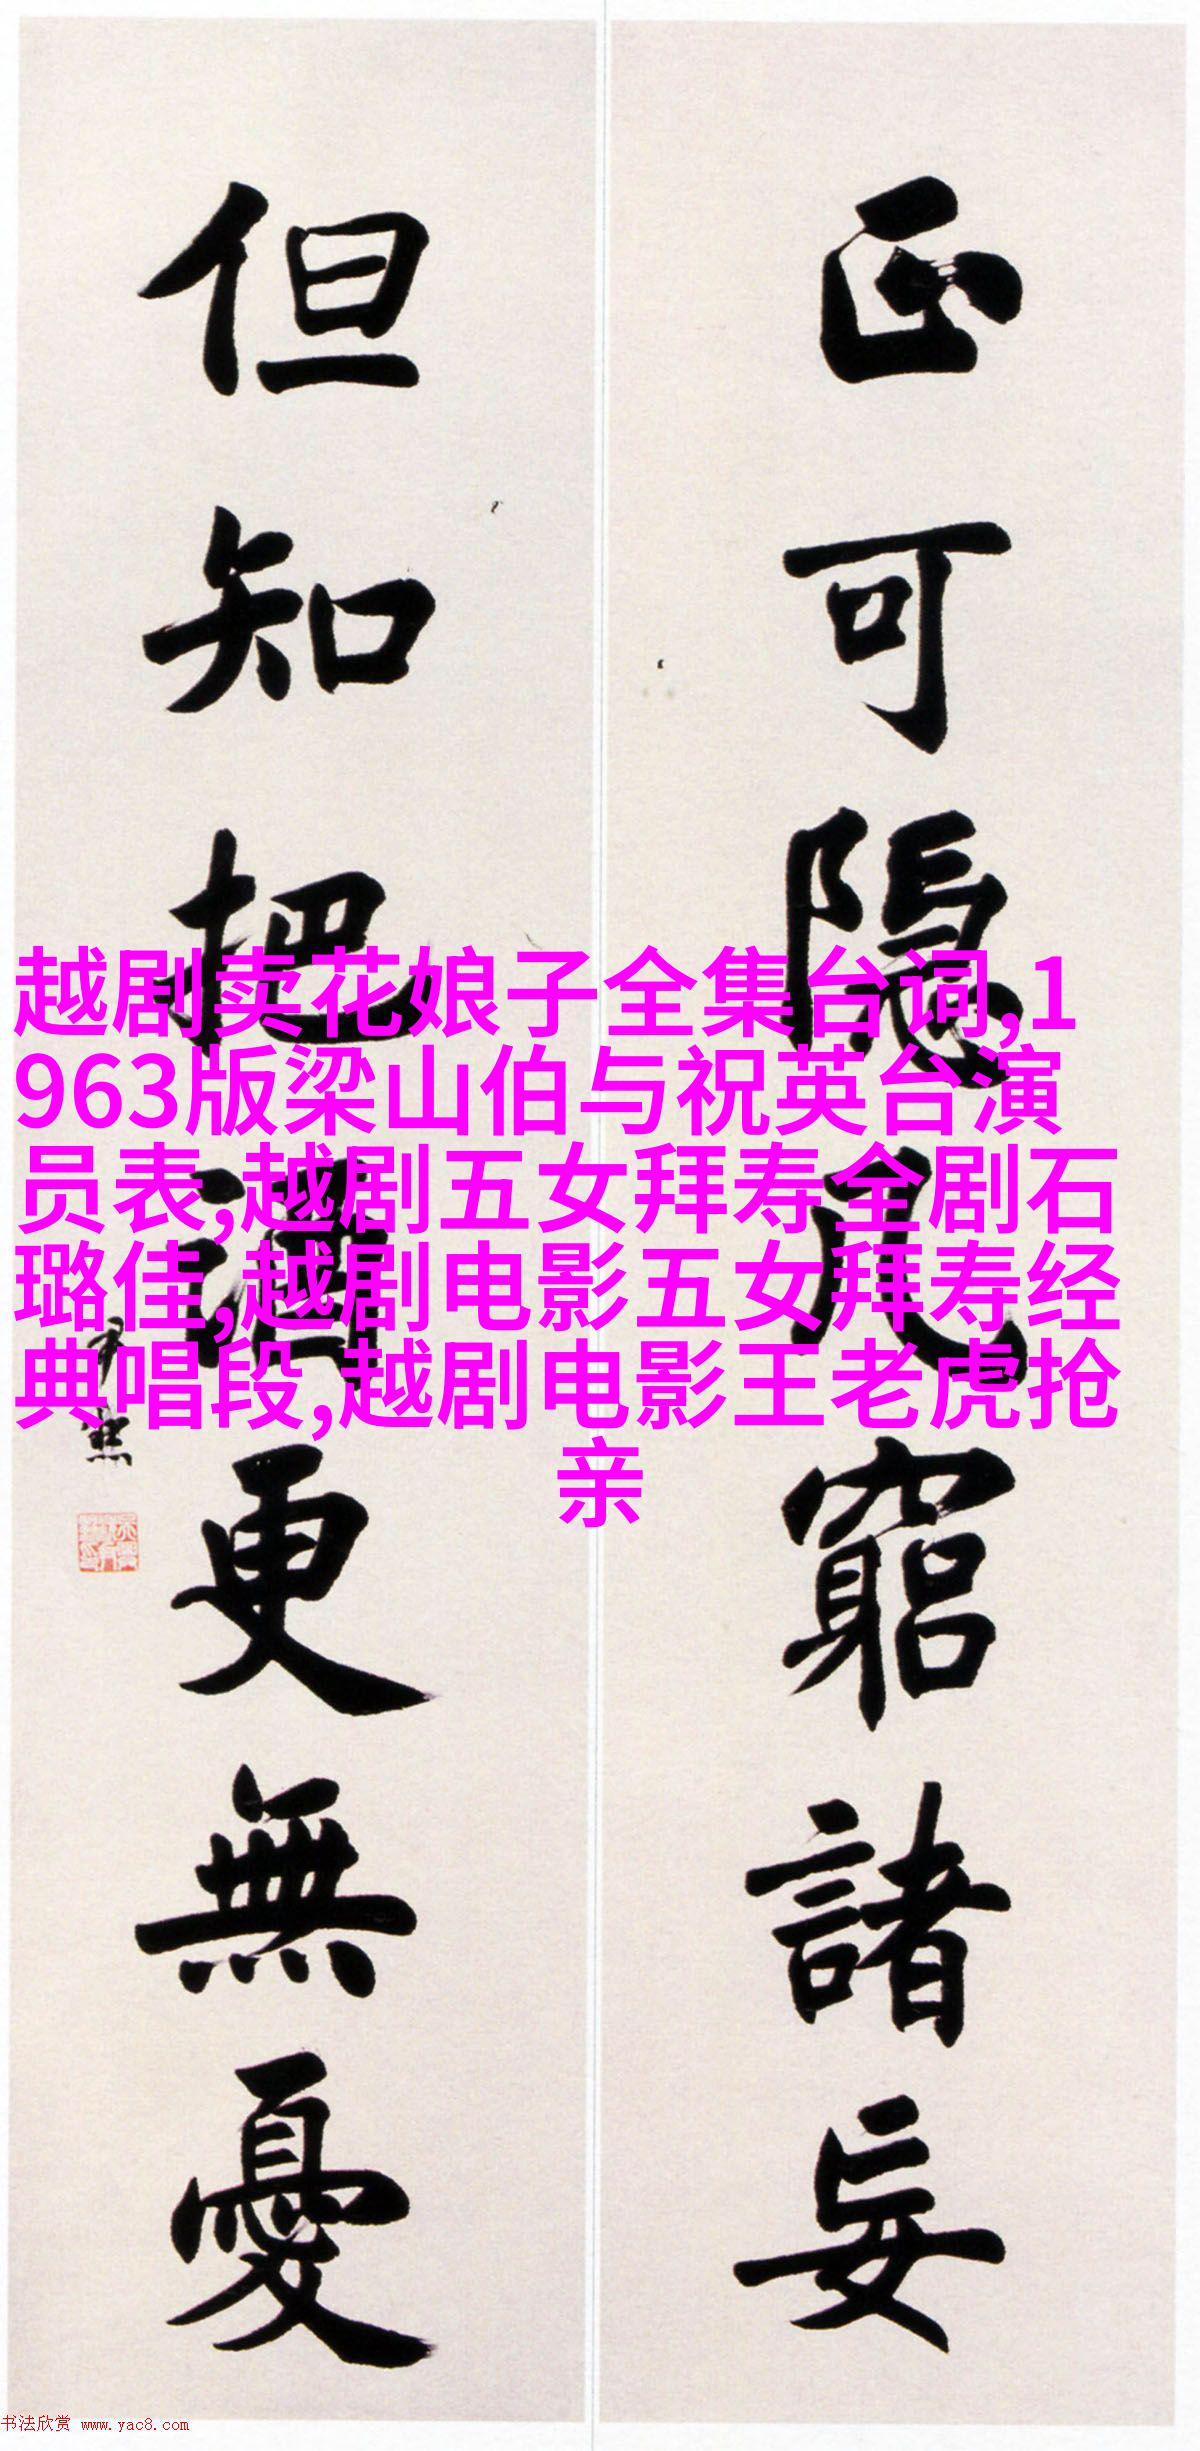 正可隱几窮諸妄
但知把酒更無憂
越剧卖花娘子全集台词,1
963版梁山伯与祝英台演
员表,越剧五女拜寿全剧石
璐佳,越剧电影五女拜寿经
典唱段,越剧电影王老虎抢
亲
书法欣赏 www.yac8.com